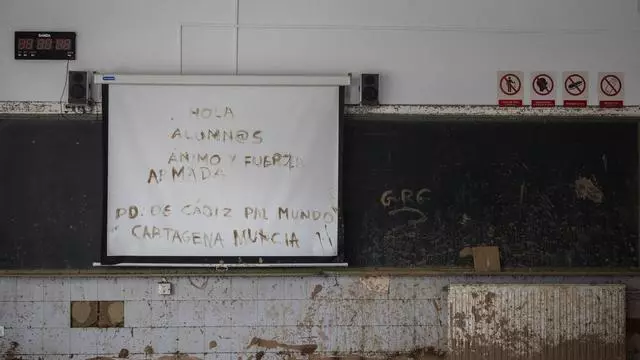 HOLA
ALUMN@S
ÁNIMO Y FUERZA
ARMADA
PD. DE CÁDIZ PAL MUNDO
CARTAGENA MUNCIA !!
GRG